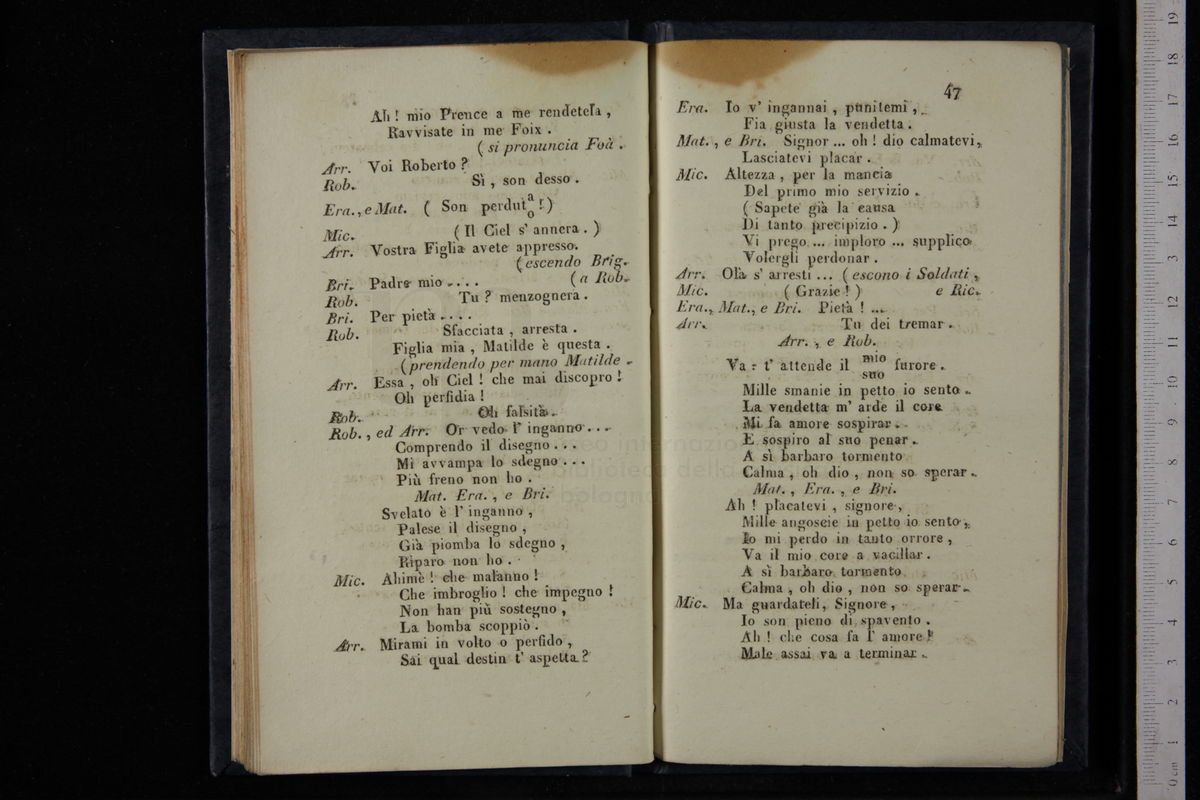 Ah ! mio Prence a me rendetela ,
Ravvisate in me Foix .
( si pronuncia Foà .
Arr. Voi Roberto ?
Rob. Sì , son desso .
Era., e Mat. ( Son perdut a o ! )
Mic. ( Il Ciel s' annera . )
Arr. Vostra Figlia avete appresso.
( escendo Brig.
Bri. Padre mio . . . . ( a Rob.
Rob. Tu ? menzognera .
Bri. Per pietà . . . .
Rob. Sfacciata , arresta .
Figlia mia , Matilde è questa .
( prendendo per mano Matilde .
Arr. Essa , oh Ciel ! che mai discopro !
Oh perfidia !
Rob. Oh falsità .
Rob. , ed Arr. Or vedo l' inganno . . .
Comprendo il disegno . . .
Mi avvampa lo sdegno . . .
Più freno non ho .
Mat. Era. , e Bri.
Svelato è l' inganno ,
Palese il disegno ,
Già piomba lo sdegno ,
Riparo non ho .
Mic. Ahimè ! che malanno !
Che imbroglio ! che impegno !
Non han più sostegno ,
La bomba scoppiò .
Arr. Mirami in volto o perfido ,
Sai qual destin t' aspetta ?
47
Era. Io v' ingannai , punitemi ,
Fia giusta la vendetta .
Mat. , e Bri. Signor ... oh ! dio calmatevi,
Lasciatevi placar .
Mic. Altezza , per la mancia
Del primo mio servizio .
( Sapete già la causa
Di tanto precipizio . )
Vi prego ... imploro ... supplico
Volergli perdonar .
Arr. Olà s' arresti ... ( escono i Soldati ,
Mic. ( Grazie ! ) e Ric.
Era., Mat., e Bri. Pietà ! ...
Arr. Tu dei tremar .
Arr. , e Rob.
Va : t' attende il mio suo furore .
Mille smanie in petto io sento .
La vendetta m' arde il core
Mi fa amore sospirar .
E sospiro al suo penar .
A sì barbaro tormento
Calma , oh dio , non so sperar .
Mat. , Era. , e Bri.
Ah ! placatevi , signore ,
Mille angoscie in petto io sento ,
Io mi perdo in tanto orrore ,
Va il mio core a vacillar .
A sì barbaro tormento
Calma , oh dio , non so sperar .
Mic. Ma guardateli, Signore ,
Io son pieno di spavento .
Ah ! che cosa fa l' amore !
Male assai va a terminar .